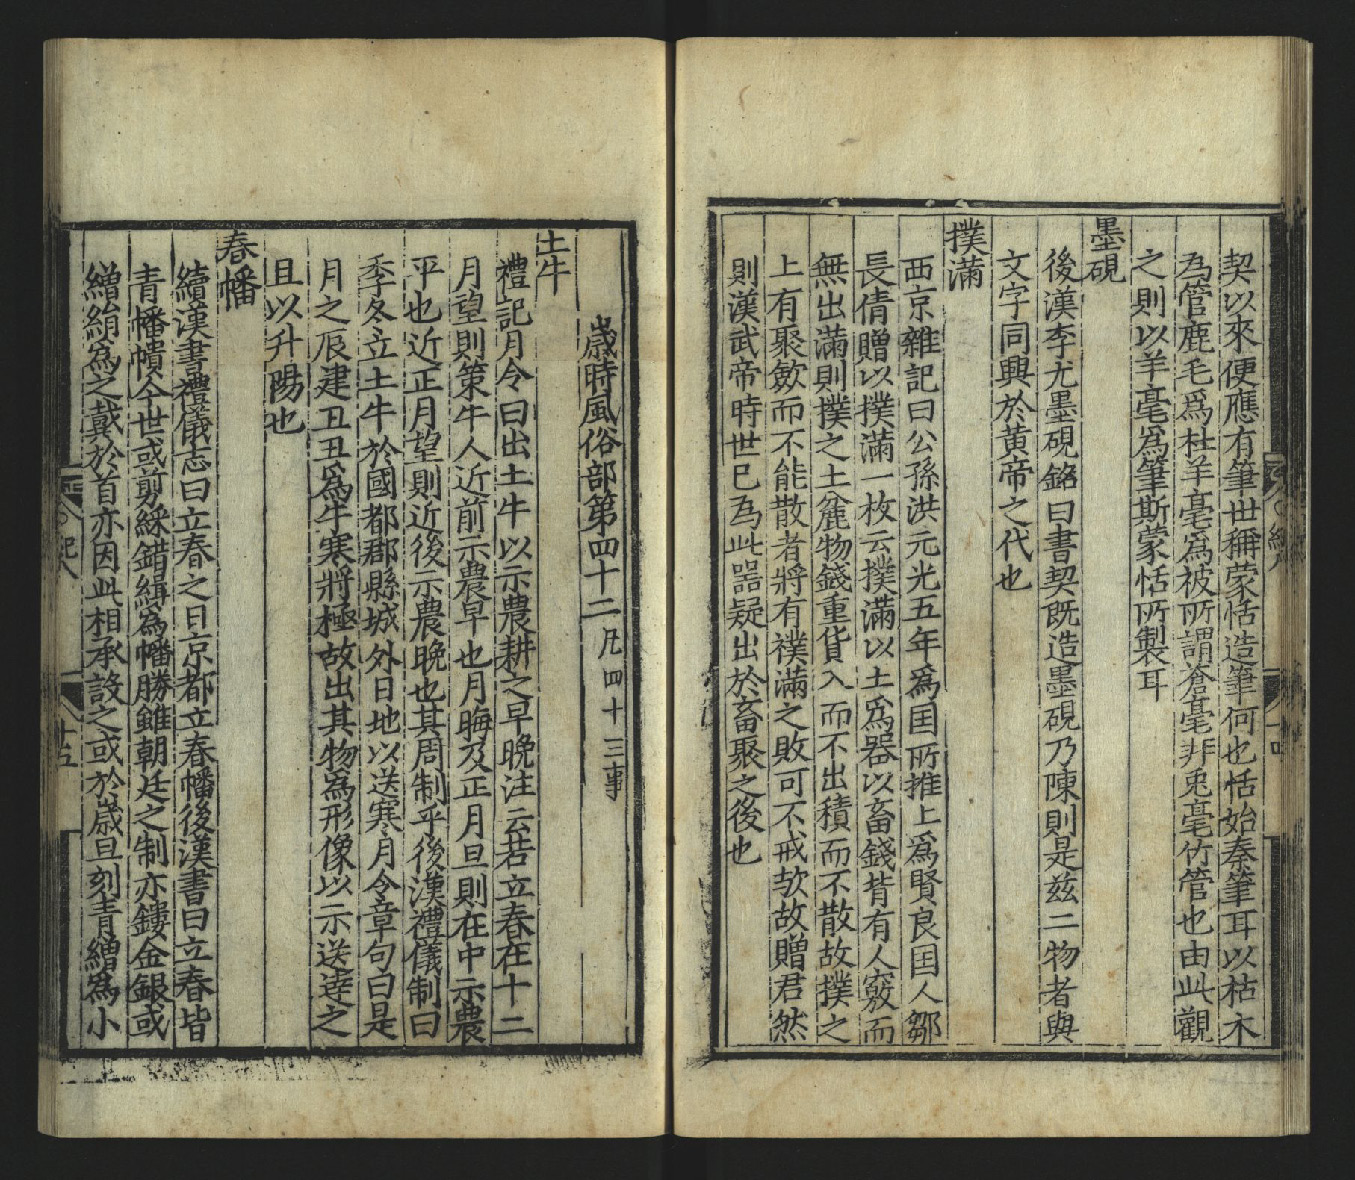 契以來便應有筆世稱蒙恬造筆何也恬始秦筆耳以枯木
為管鹿毛爲柱羊毫爲被所謂蒼毫非兎毫竹管也由此觀
之則以羊毫爲筆斯蒙恬所製耳
墨硯
後漢李尤墨硯銘曰書契既造墨硯乃陳則是兹二物者與
文字同興於黄帝之代也
撲滿
西京雜記曰公孫洪元光五年爲囯所推上爲賢良囯人鄒
長倩贈以撲滿一枚云撲滿以土爲器以畜錢皆有人竅而
無出滿則撲之土麄物錢重貨入而不出積而不散故撲之
上有聚斂而不能散者將有襆滿之敗可不戒欤故贈君然
則漢武帝時世已為此噐疑出於畜聚之後也
歲時風俗部第四十二凡四十三事
土牛
禮記月令曰出土牛以示農耕之早晚注云若立春在十二
月望則策牛人近前示農早也月晦及正月旦則在中示農
平也近正月望則近後示農晚也其周制乎後漢禮儀制曰
季冬立土牛於國都郡縣城外日地以送寒月令章句曰是
月之辰建丑丑爲牛寒將極故出其物爲形像以示送逹之
且以升陽也
春幡
續漢書禮儀志曰立春之日京都立春幡後漢書曰立春皆
青幡幘今世或剪綵錯緝為幡勝雖朝廷之制亦鏤金銀或
繒絹為之戴於首亦因此相承設之或於歲旦刻青繒爲小
十五